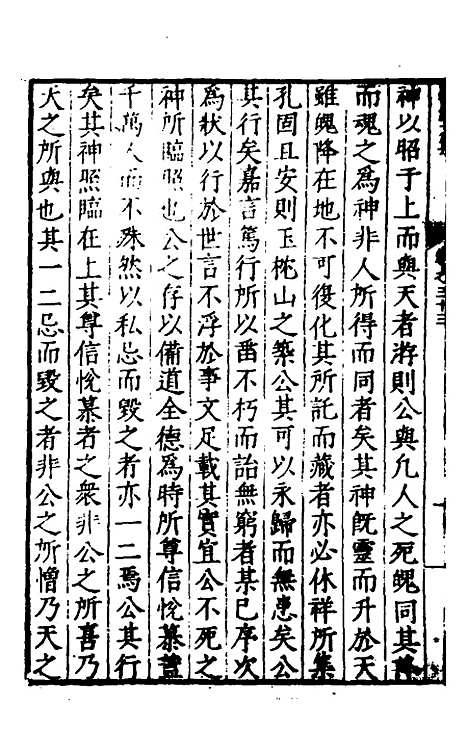 神以昭于上而與天者游則公與凡人之死魄同其降
而魂之爲神非人所得而同者矣其神旣靈而升於天
雖魄降在地不可復化其所託而藏者亦必休祥所集
孔固且安則玉枕山之築公其可以永歸而無患矣公
其行矣嘉言篤行所以啚不朽而詒無窮者某已序次
為狀以行於世言不浮於事文足載其實宜公不死之
神所臨照也公之存以備道全德爲時所尊信悅慕蓋
千萬人而不殊然以私忌而毀之者亦一二焉公其行
矣其神照臨在上其尊信悅慕者之衆非公之所喜乃
天之所與也其一二忌而毀之者非公之所憎乃天之